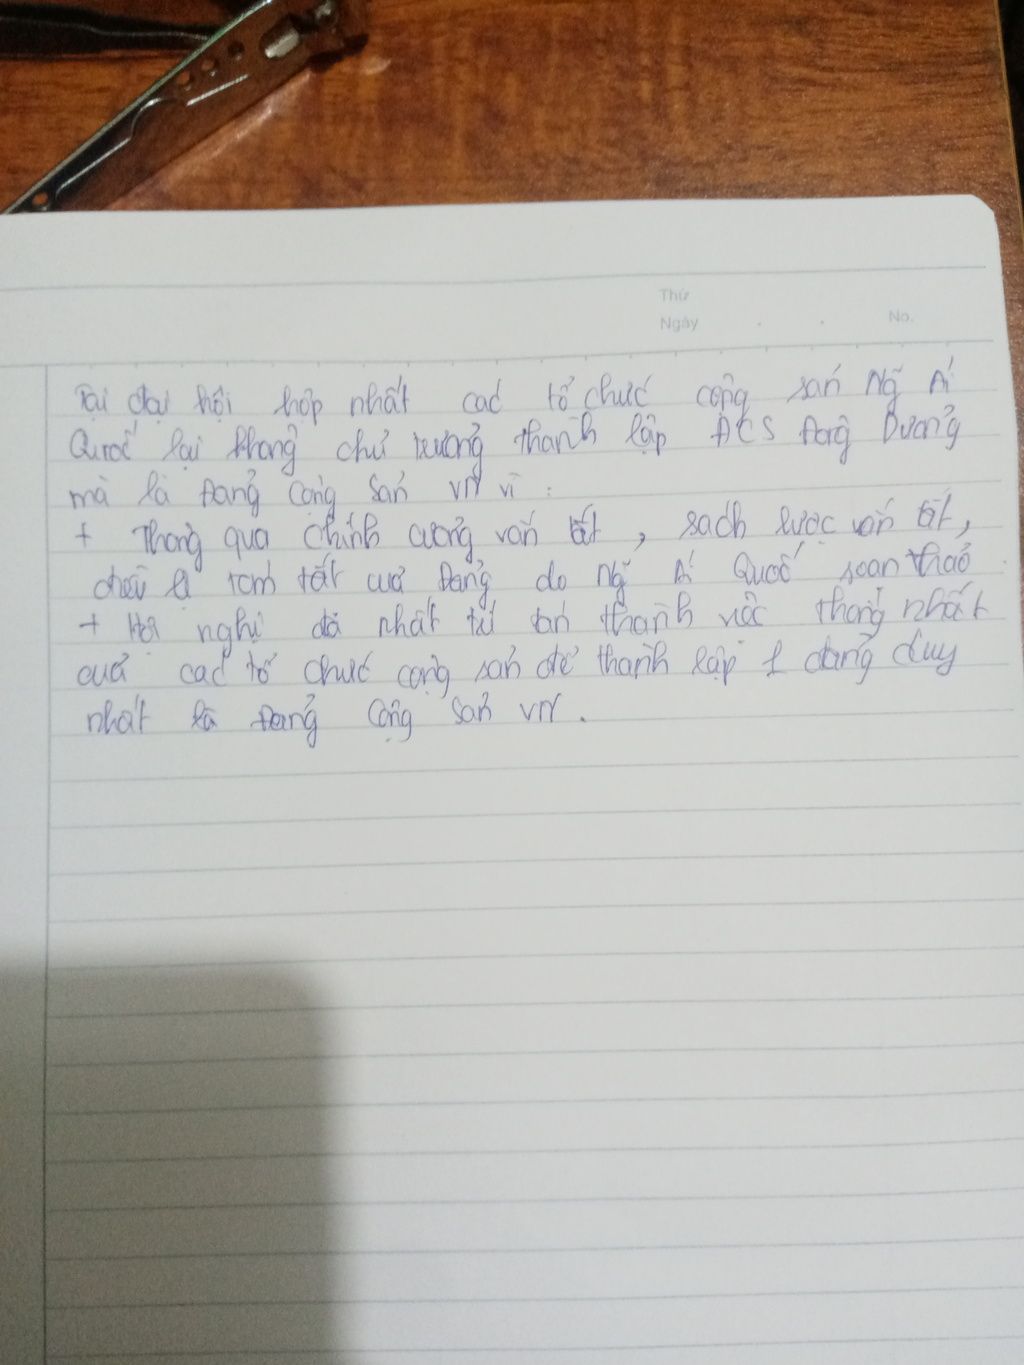 Thứ
Ngày . . No.
Tại đại hội hợp nhất các tổ chức cộng sản Ng~ Ái
Quốc lại không chủ trương thành lập ĐCS Đông Dương
mà là Đảng cộng sản VN vì :
+ Thông qua chính cương vắn tắt, sách lược vắn tắt,
điều lệ tóm tắt của Đảng do Ng~ Ái Quốc soạn thảo
+ Hội nghị đã nhất trí tán thành việc thống nhất
của các tổ chức cộng sản để thành lập 1 đảng duy
nhất là Đảng cộng sản VN.